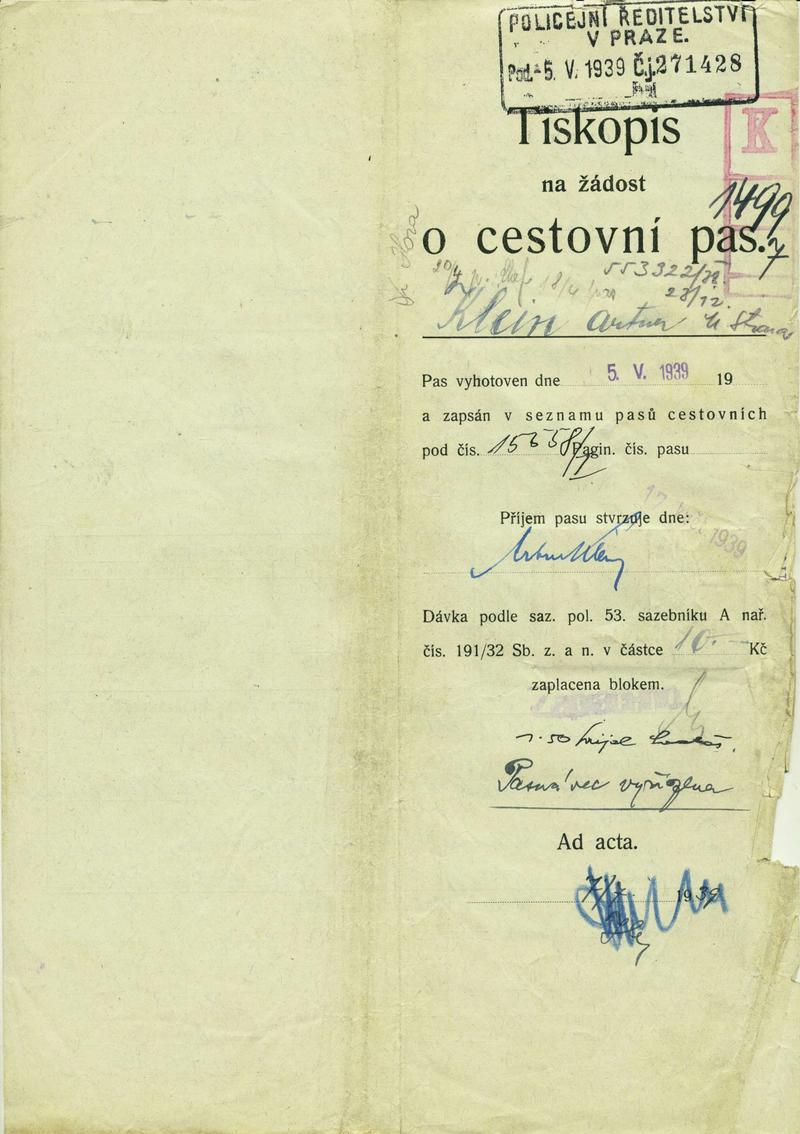 POLICEJNÍ ŘEDITELSTVÍ
V PRAZE.
Pod. -5. V. 1939 Čj. 271428
K
Tiskopis
na žádost
1499
o cestovní pas.
553322/
28/12.
Klein Artur
Pas vyhotoven dne 5. V. 1939 19
a zapsán v seznamu pasů cestovních
pod čís. Pagin. čís. pasu
Příjem pasu stvrzuje dne:
1939
Artur Klein
Dávka podle saz. pol. 53. sazebníku A nař.
čís. 191/32 Sb. z. a n. v částce 10.— Kč
zaplacena blokem.
Pasová věc vyřízena
Ad acta.
1939